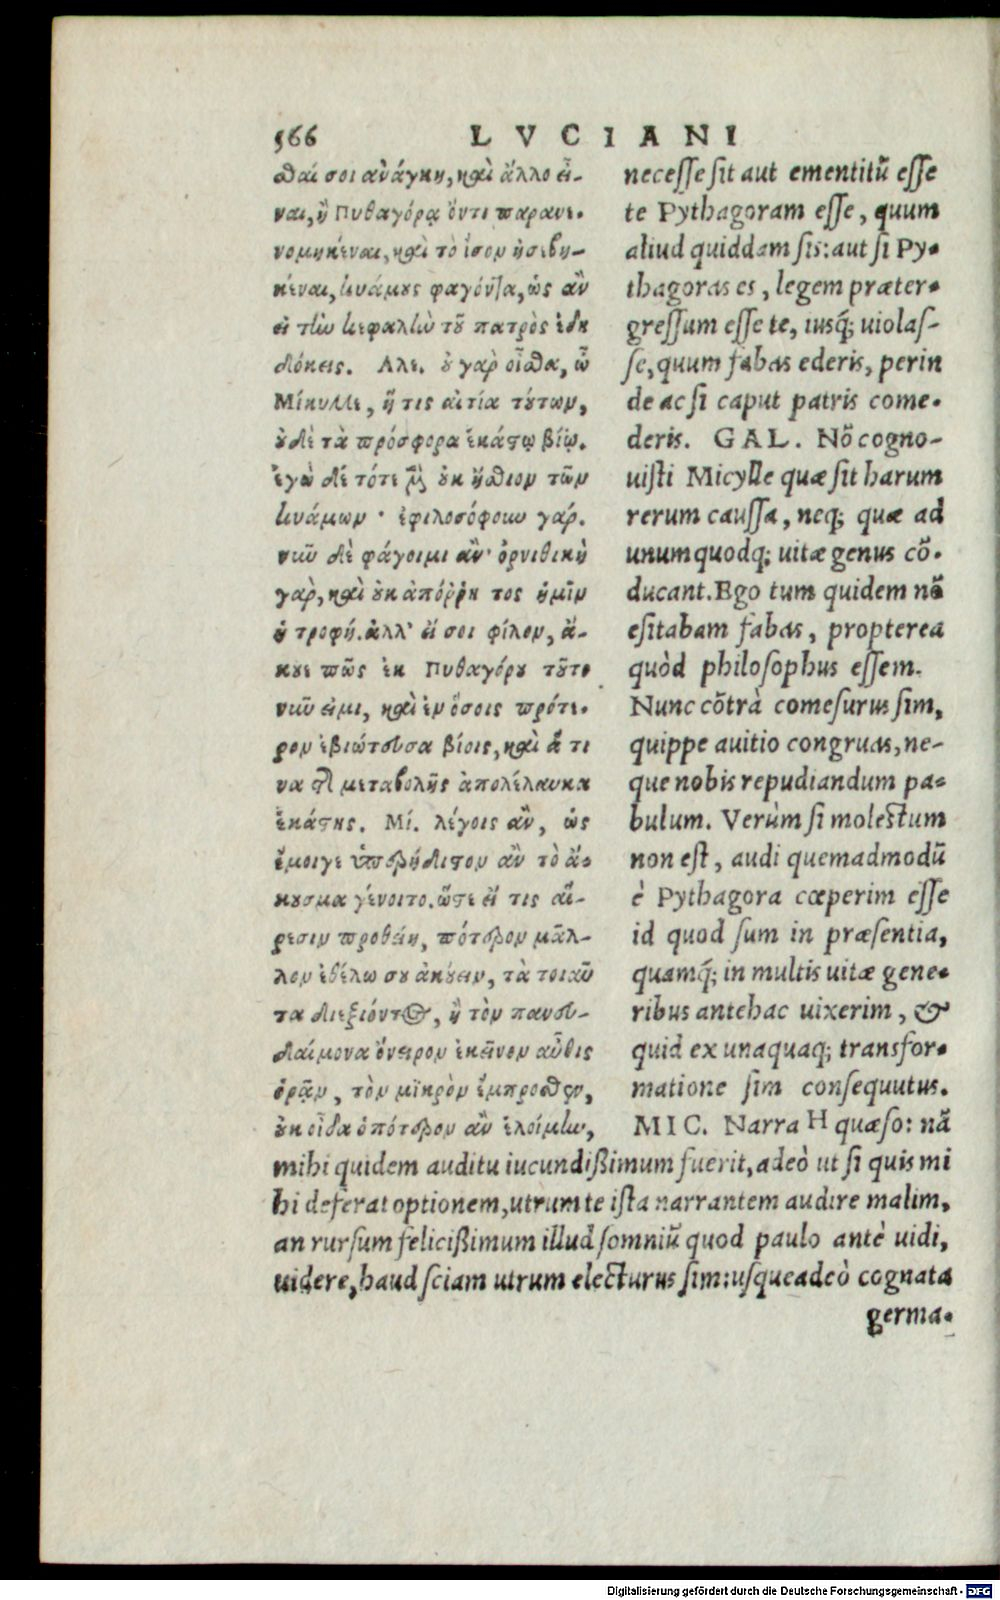 566 LVCIANI
σθαί σοι ἀνάγκη, καὶ ἄλλο εἶ-
ναι, ἢ Πυθαγόρᾳ ὄντι παρανε-
νομηκέναι, καὶ τὸ ἴσον ἠσεβη-
κέναι, κυάμους φαγόντα, ὡς ἂν
εἰ τὴν κεφαλὴν τοῦ πατρὸς ἐδη
δόκεις. Αλε. οὐ γὰρ οἶσθα, ὦ
Μίκυλλε, ἥ τις αἰτία τούτων,
οὐδὲ τὰ πρόσφορα ἑκάστῳ βίῳ.
ἐγὼ δέ τότε μὲν οὐκ ἤσθιον τῶν
κυάμων · ἐφιλοσόφουν γάρ.
νῦν δὲ φάγοιμι ἂν· ὀρνιθικὴ
γὰρ, καὶ οὐκ ἀπόῤῥη τος ἡμῖν
ἡ τροφή. ἀλλ' εἴ σοι φίλον, ἄ-
κουε πῶς ἐκ Πυθαγόρου τοῦτο
νῦν εἰμι, καὶ ἐν ὅσοις πρότε-
ρον ἐβιώτευσα βίοις, καὶ ἅ τι
να τῆς μεταβολῆς ἀπολέλαυκα
ἑκάστης. Μί. λέγοις ἂν, ὡς
ἔμοιγε ὑπερήδιστον ἂν τὸ ἄ-
κουσμα γένοιτο. ὥστε εἴ τις αἵ-
ρεσιν προθείη, πότερον μᾶλ-
λον ἐθέλω σου ἀκούειν, τὰ τοιαῦ
τα διεξιόντος, ἢ τὸν πανευ-
δαίμονα ὄνειρον ἐκεῖνον αὖθις
ὁρᾷν, τὸν μικρὸν ἔμπροσθεν,
οὐκ οἶδα ὁπότερον ἂν ἑλοίμην,
necesse sit aut ementitũ esse
te Pythagoram esse, quum
aliud quiddam sis: aut si Py-
thagoras es, legem præter-
gressum esse te, iusq́; uiolas-
se, quum fabas ederis, perin
de ac si caput patris come-
deris. GAL. Nõ cogno-
uisti Micylle quæ sit harum
rerum caussa, neq; quæ ad
unumquodq; uitæ genus cõ-
ducant. Ego tum quidem nõ
esitabam fabas, propterea
quòd philosophus essem.
Nunc cõtrà comesurus sim,
quippe auitio congruas, ne-
que nobis repudiandum pa-
bulum. Verùm si molestum
non est, audi quemadmodũ
è Pythagora cœperim esse
id quod sum in præsentia,
quamq́; in multis uitæ gene-
ribus antehac uixerim, &
quid ex unaquaq; transfor-
matione sim consequutus.
MIC. Narra H quæso: nã
mihi quidem auditu iucundißimum fuerit, adeò ut si quis mi
hi deferat optionem, utrum te ista narrantem audire malim,
an rursum felicißimum illud somniũ quod paulo antè uidi,
uidere, haud sciam utrum electurus sim: usqueadeò cognata
germa-
Digitalisierung gefördert durch die Deutsche Forschungsgemeinschaft - DFG